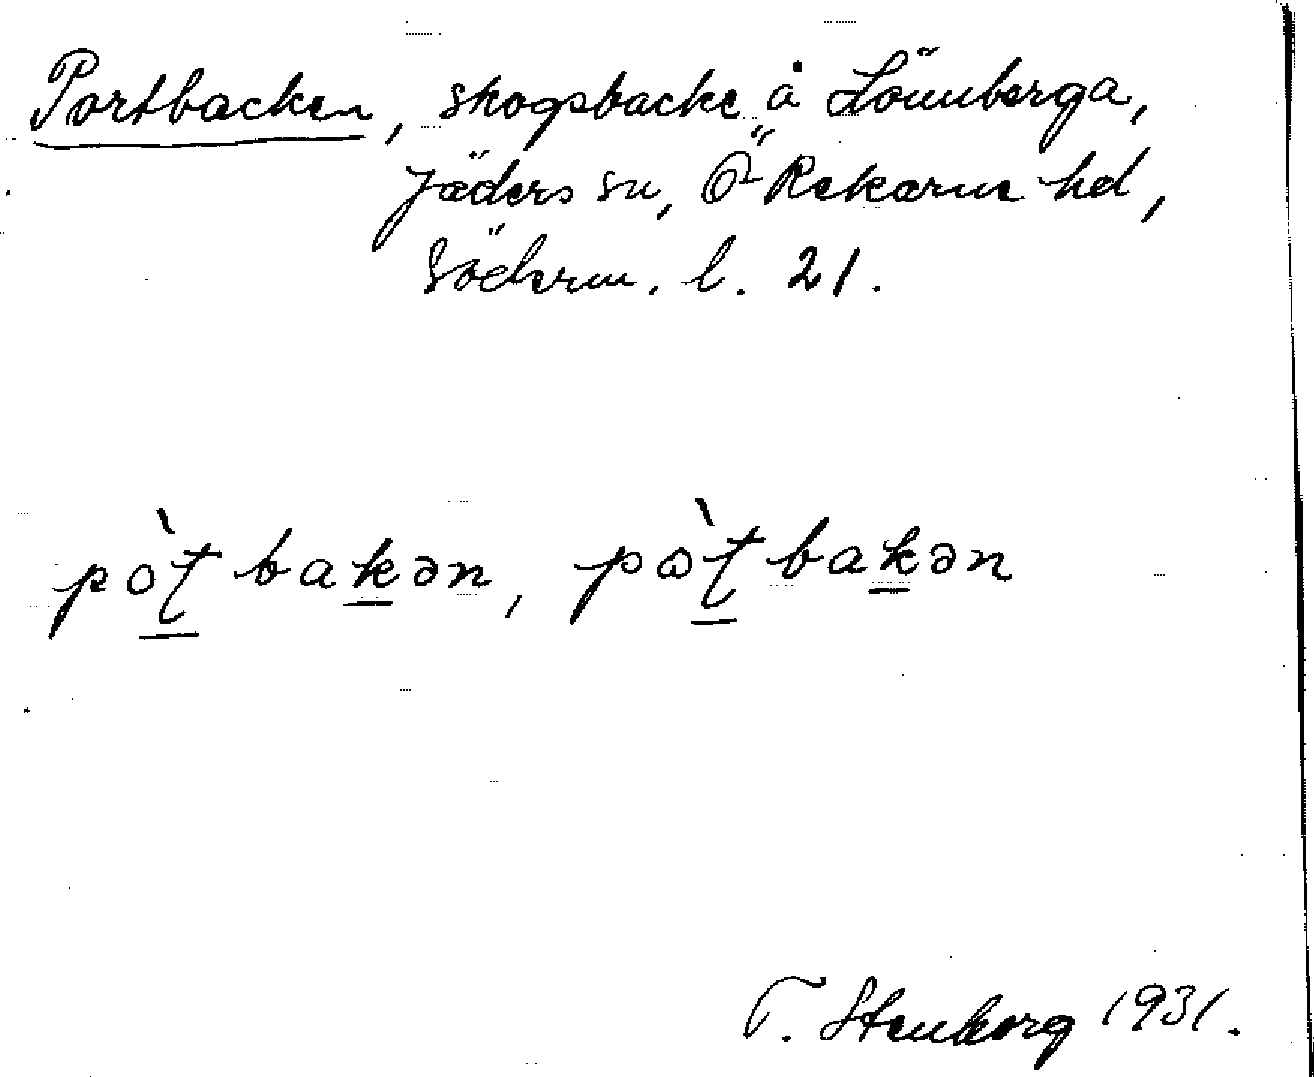 Portbacken, skogsbacke å Lönnberga,
Jäders sn, Ö Rekarne hd,
Söderm. l. 21.
pò̱ʈbaḵən, pɷ̀ʈ̱baḵən
T. Stenborg 1931.